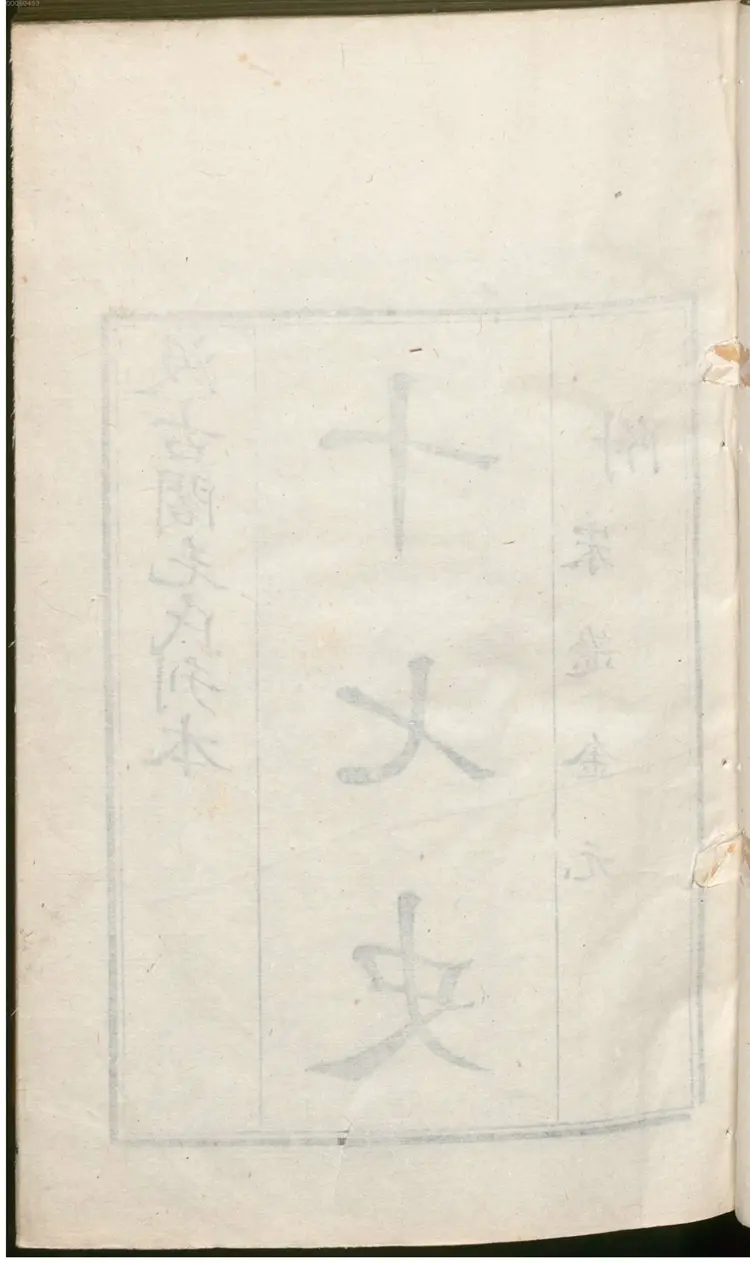 汲古閣毛氏本
十七史
宋遼金元